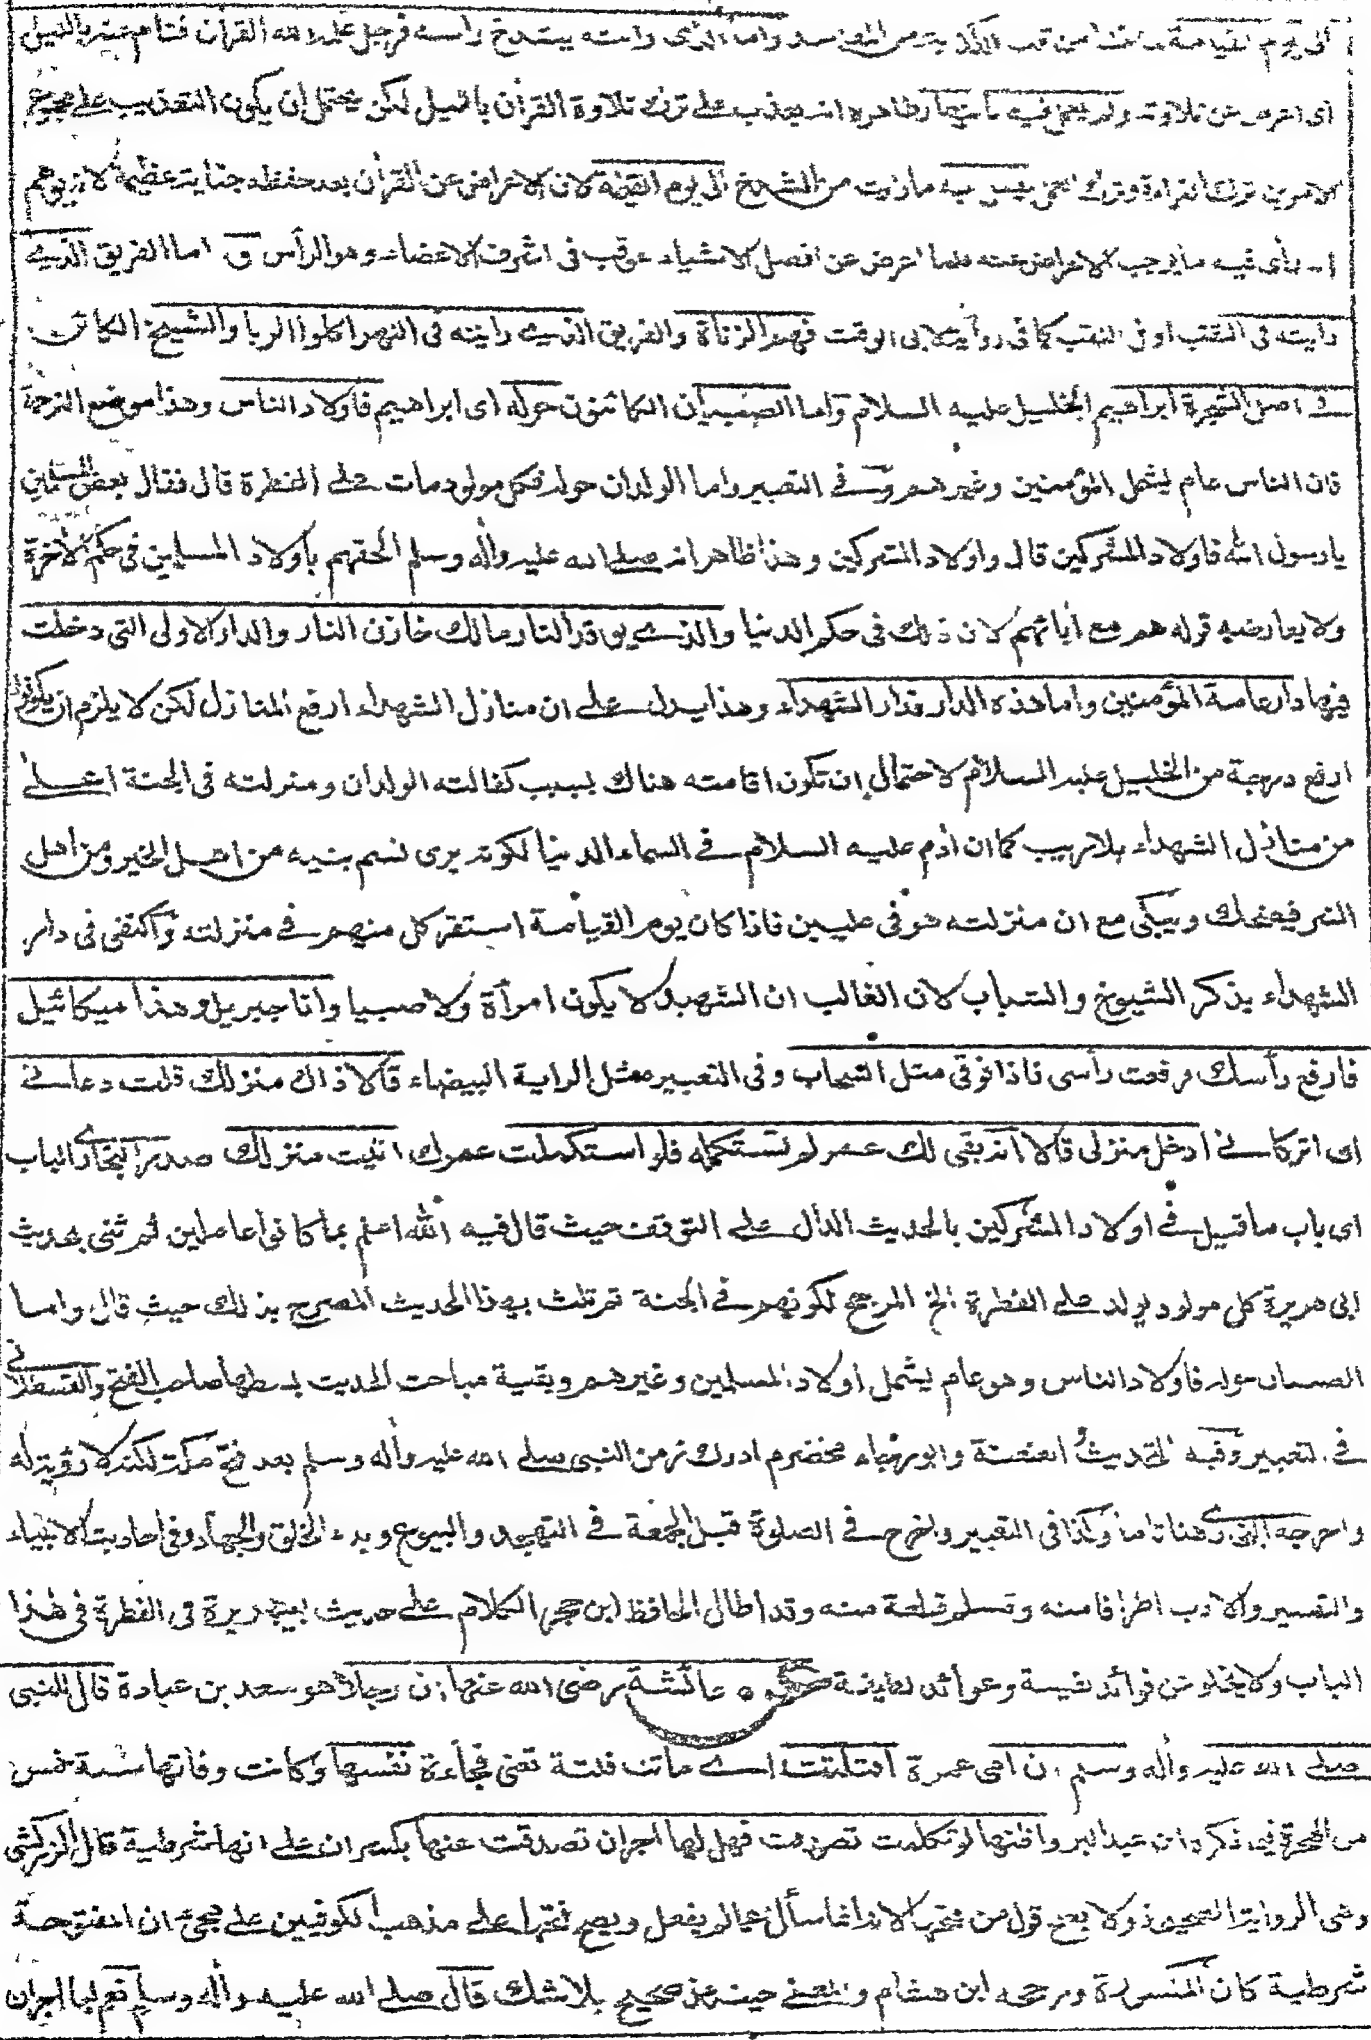 الى يوم القيامة والذى رأيته يشدخ راسه فرجل علمه الله القرآن فنام عنه بالليل
اى اعرض عن تلاوته ولم يعمل فيه بالنهار ظاهره انه يعذب على ترك تلاوة القرآن بالليل لكن يحتمل ان يكون التعذيب على مجموع
الامرين ترك القراءة وترك العمل يفعل به ما رايت من الشدخ الى يوم القيمة لان الاعراض عن القرآن بعد حفظه جناية عظيمة لانه يوهم
انه رأى فيه ما يوجب الاعراض عنه فلما اعرض عن افضل الاشياء عوقب فى اشرف الاعضاء وهو الرأس و اما الفريق الذى
رايته فى الثقب او فى النقب كما فى رواية لابى الوقت فهم الزناة والفريق الذى رايته فى النهر اكلوا الربا والشيخ الكائن
فى اصل الشجرة ابراهيم الخليل عليه السلام واما الصبيان الكائنون حوله اى ابراهيم فاولاد الناس وهذا موضع الترجمة
فان الناس عام يشمل المؤمنين وغيرهم وفى التعبير واما الولدان حوله فكل مولود مات على الفطرة قال فقال بعض المسلمين
يا رسول الله فاولاد المشركين قال واولاد المشركين وهذا ظاهر انه صلى الله عليه وأله وسلم الحقهم باولاد المسلمين فى حكم الأخرة
ولا يعارضه قوله هم مع أبائهم لان ذلك فى حكم الدنيا والذى يوقد النار مالك خازن النار والدار الاولى التى دخلت
فيها دار عامة المؤمنين واما هذه الدار فدار الشهداء وهذا يدل على ان منازل الشهداء ارفع المنازل لكن لا يلزم ان يكونوا
ارفع درجة من الخليل عليه السلام لاحتمال ان تكون اقامته هناك بسبب كفالته الولدان ومنزلته فى الجنة اعلى
من منازل الشهداء بلا ريب كما ان أدم عليه السلام فى السماء الدنيا لكونه يرى نسم بنيه من اهل الخير ومن اهل
الشر فيضحك ويبكى مع ان منزلته هو فى عليين فاذا كان يوم القيامة استقر كل منهم فى منزلته واكتفى فى دار
الشهداء بذكر الشيوخ والشباب لان الغالب ان الشهيد لا يكون امرأة ولا صبيا وانا جبريل وهذا ميكائيل
فارفع رأسك فرفعت رأسى فاذا فوقى مثل السحاب وفى التعبير مثل الراية البيضاء قالا ذاك منزلك قلت دعانى
اى اتركانى ادخل منزلى قالا انه بقى لك عمر لم تستكمله فلو استكملت عمرك اتيت منزلك صدر البخارى الباب
اى باب ما قيل فى اولاد المشركين بالحديث الدال على التوقف حيث قال فيه الله اعلم بما كانوا عاملين ثم ثنى بحديث
ابى هريرة كل مولود يولد على الفطرة الخ المرجح لكونهم فى الجنة ثم ثلث بهذا الحديث المصرح بذلك حيث قال واما
الصبيان حوله فاولاد الناس وهو عام يشمل أولاد المسلمين وغيرهم وبقية مباحث الحديث بسطها صاحب الفتح والقسطلانى
فى التعبير وفيه التحديث والعنعنة وابو رجاء مخضرم ادرك زمن النبى صلى الله عليه وأله وسلم بعد فتح مكة لكنه لا رؤية له
واخرجه البخارى هنا تاما وكذا فى التعبير واخرج فى الصلوة قبل الجمعة فى التهجد والبيوع وبدء الخلق والجهاد وفى احاديث الانبياء
والتفسير والادب اطرافا منه ومسلم قطعة منه وقد اطال الحافظ ابن حجر الكلام على حديث ابى هريرة فى الفطرة فى هذا
الباب ولا يخلو عن فوائد نفيسة وعوائد عائشة رضى الله عنها ان رجلا هو سعد بن عبادة قال للنبى
صلى الله عليه وأله وسلم ان امى عمرة افتلتت اى ماتت فلتة تعنى فجأة نفسها وكانت وفاتها سنة خمس
من الهجرة فيما ذكره ابن عبد البر واظنها لو تكلمت تصدقت فهل لها اجر ان تصدقت عنها بكسر ان على انها شرطية قال الزركشى
وهى الرواية الصحيحة ولا يصح قول من فتحها لانه انما سأل عما لم يفعل ويصح فتحها على مذهب الكوفيين على مجئ ان المفتوحة
شرطية كان المكسورة ورجحه ابن هشام والمعنى حينئذ صحيح بلا شك قال صلى الله عليه وأله وسلم نعم لها اجر ان